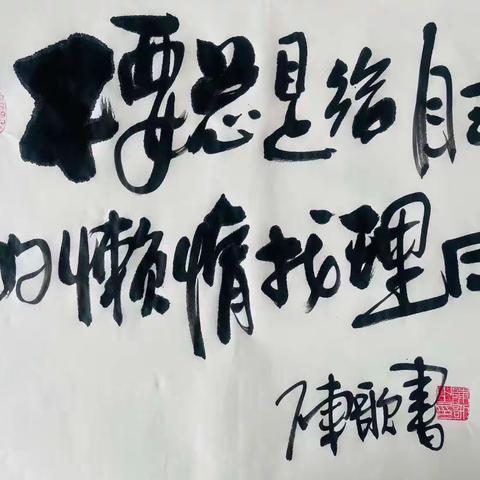 不要总是给自
懒惰找理
陳歌書